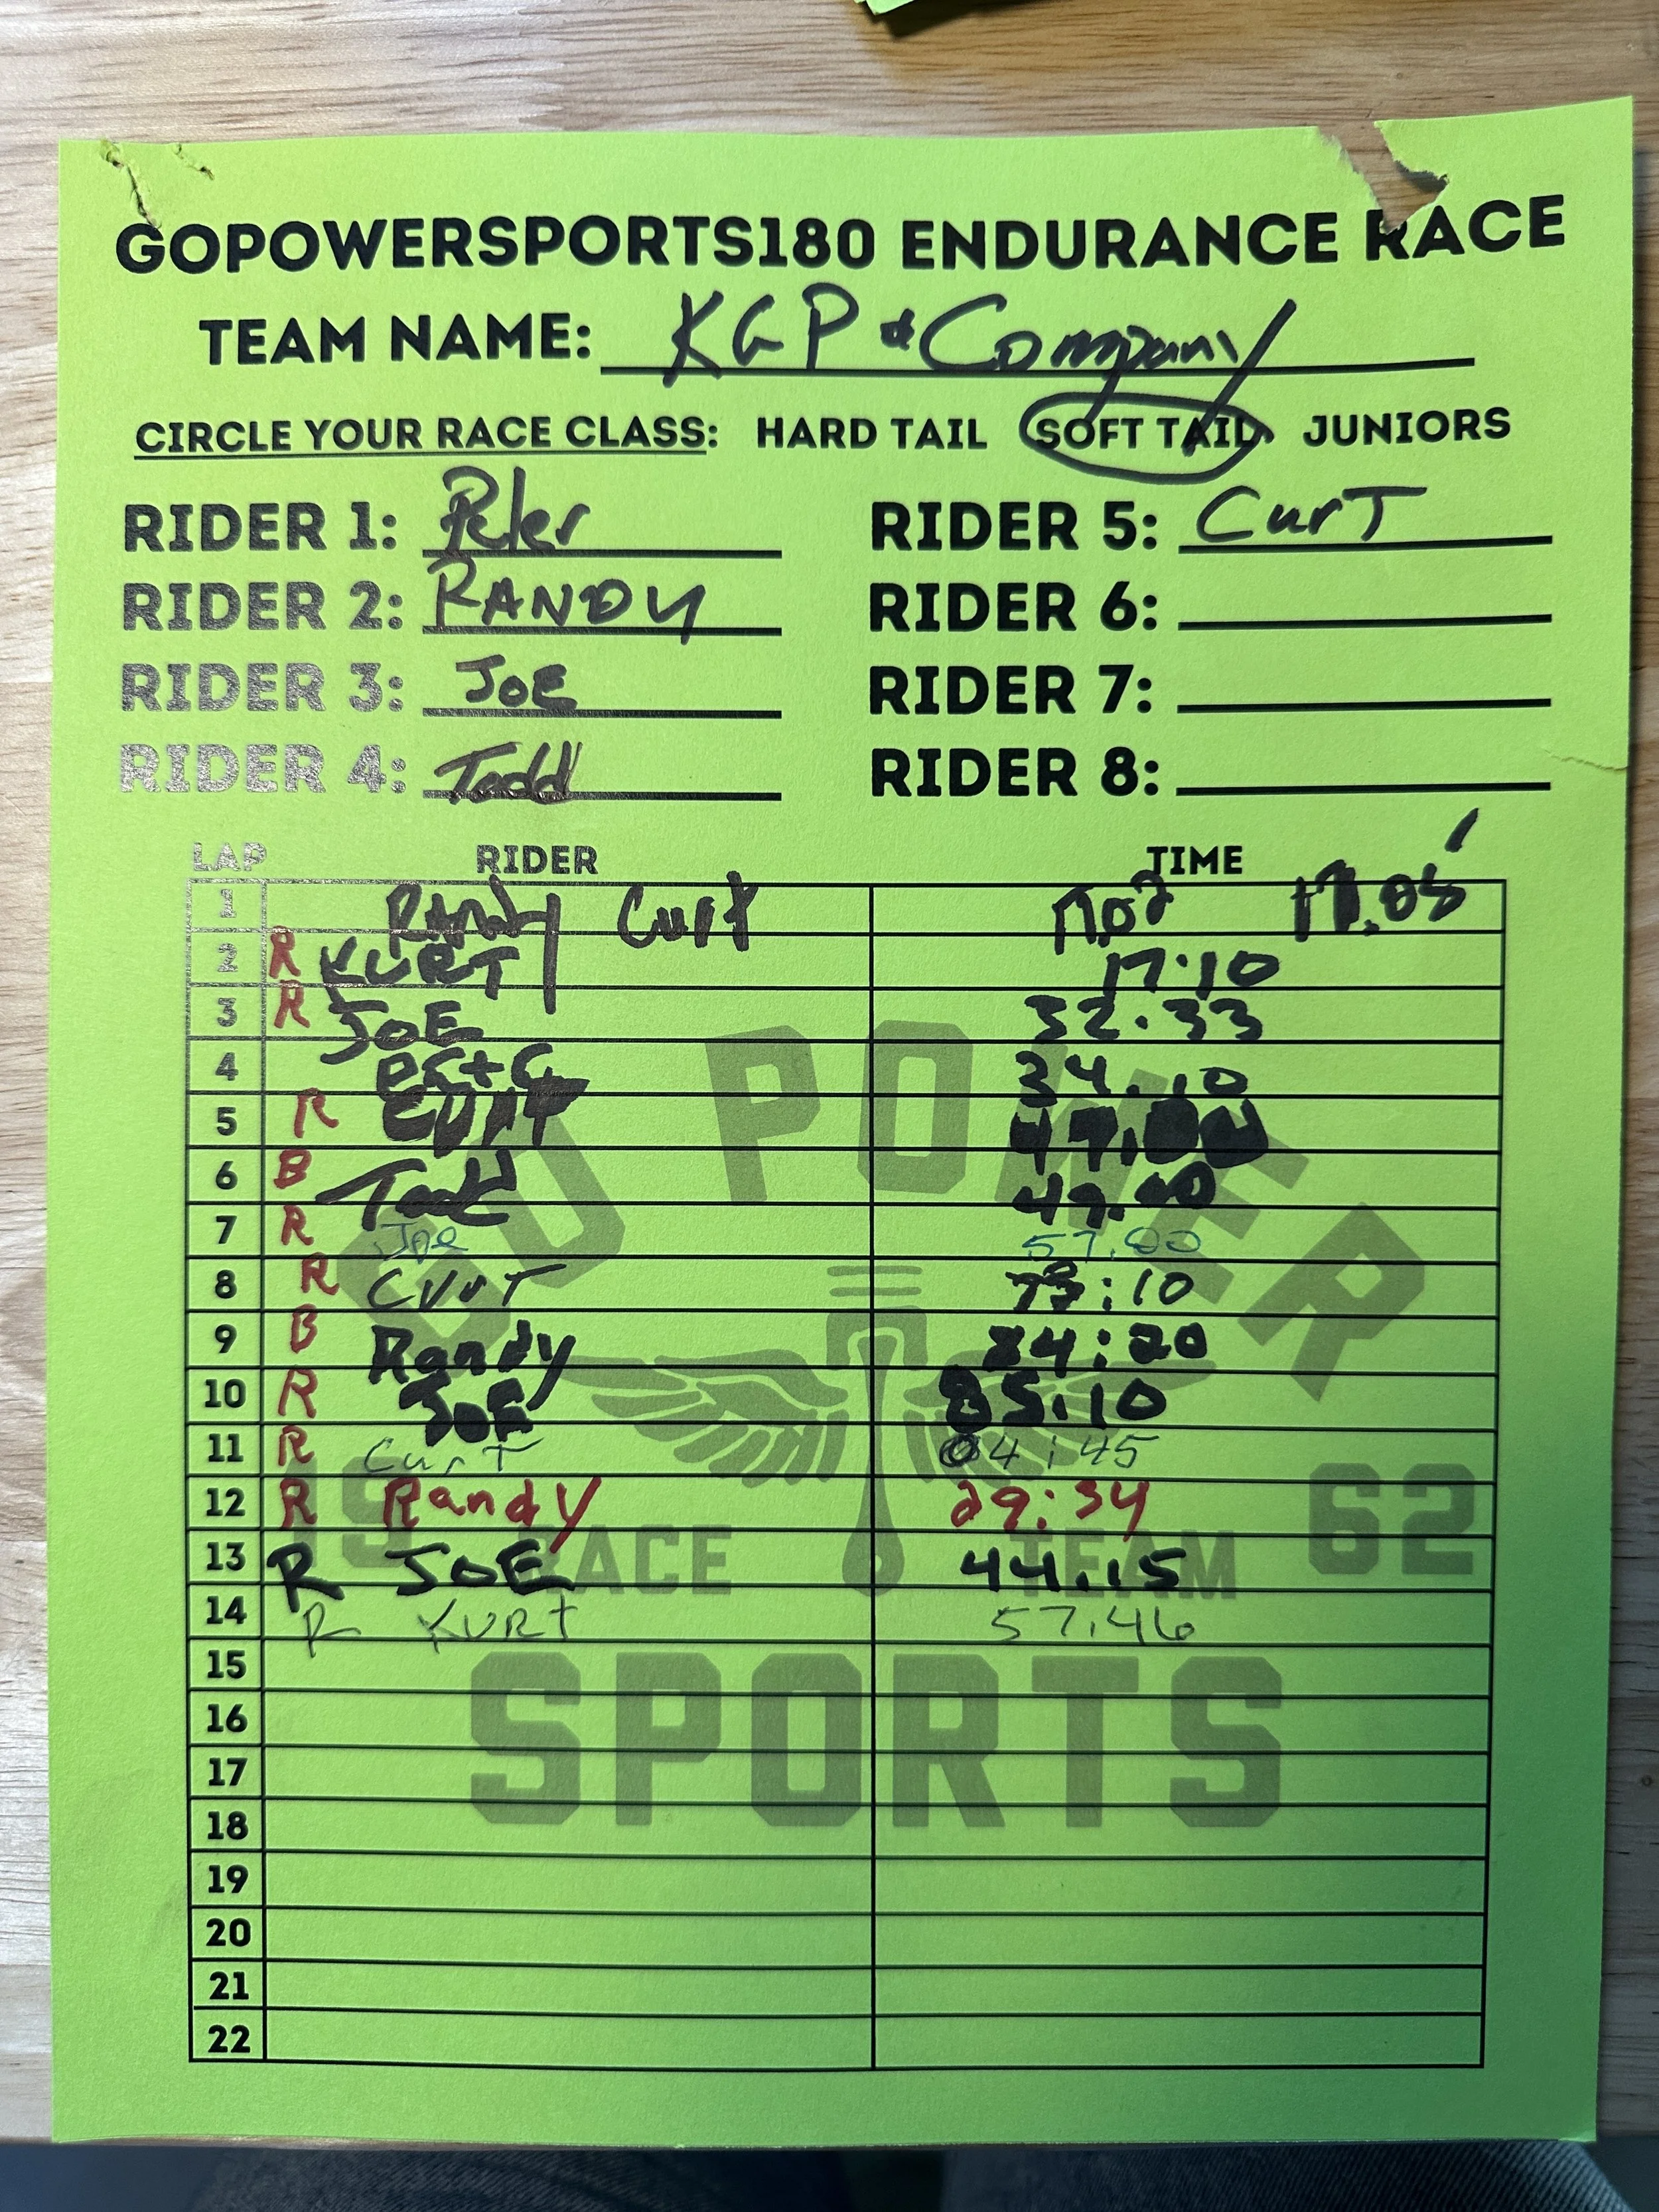 GOPOWERSPORTS180 ENDURANCE RACE
TEAM NAME: KGP & Company
CIRCLE YOUR RACE CLASS: HARD TAIL SOFT TAIL JUNIORS
RIDER 1: Peter RIDER 5: CurT
RIDER 2: RANDY RIDER 6:
RIDER 3: JOE RIDER 7:
RIDER 4: Todd RIDER 8:
LAP RIDER TIME
1 RANdy Curt 17.05
2 R KURT 17:10
3 R JOE 32.33
4 34.10
5 R CURT 47.
6 B Todd 49.00
7 R Joe 57.00
8 R CURT :10
9 B Randy 84:20
10 R JOE 85:10
11 R CurT 04:45
12 R Randy 29:34
13 R JOE 44.15
14 R KURT 57.46
15
16
17
18
19
20
21
22
GO POWER
19 62
RACE TEAM
SPORTS